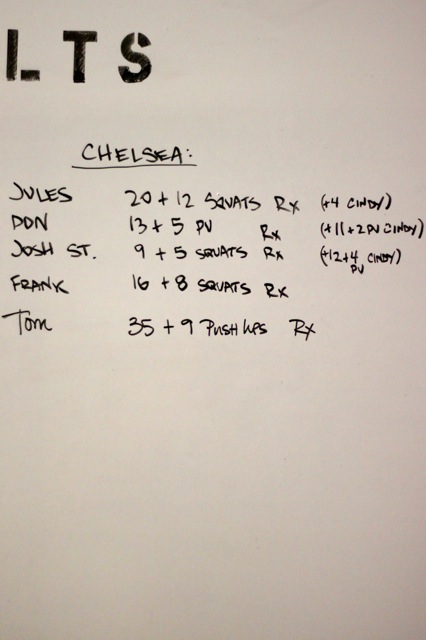 LTS
CHELSEA:
JULES 20 + 12 SQUATS Rx (+4 CINDY)
DON 13 + 5 PU Rx (+11+2PU CINDY)
JOSH ST. 9 + 5 SQUATS Rx (+12+4 PU CINDY)
FRANK 16 + 8 SQUATS Rx
Tom 35 + 9 PUSH UPS Rx